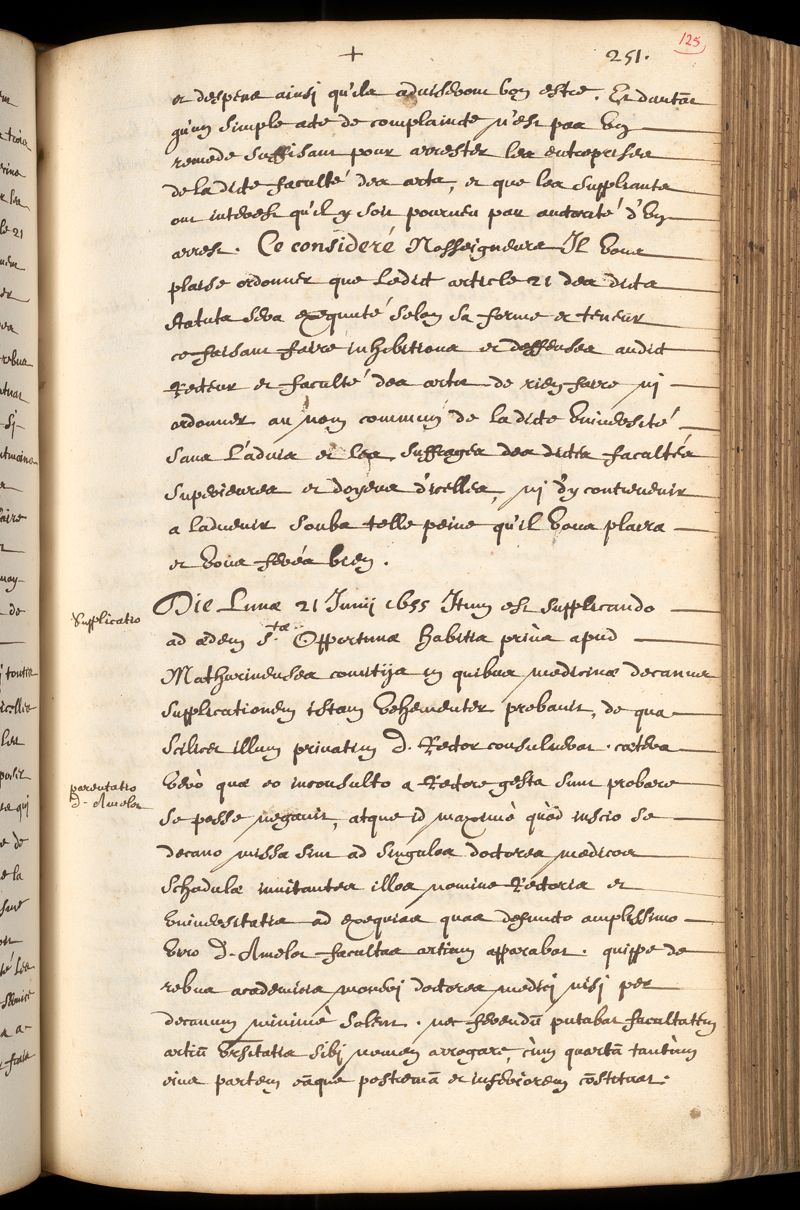 +
251.
125
et despens ainsi qu'ils aduiseront bon estre. Et dautāt
qu'un simple acte de complainte n'est pas un
remede suffisant pour arrester les entreprises
de la dicte faculté des arts, et que les suppliants
ont interest qu'il y soit pourueu par authorité d'un
arrest. Ce consideré Nosseigneurs Il vous
plaise ordonner que ledict article 21 des dicts
statuts sera exequuté selon sa forme et teneur
ce faisant faire inhibitions et deffenses audict
Recteur et faculté des arts de rien faire ni
ordonner au nom commun de la dicte uniuersité
sans l'aduis et les suffrages des dictes facultés
superieures et doyens d'icelles, ni d'y contreuenir
a laduenir soubs telle peine qu'il vous plaira
et vous ferés bien.
Supplicatio
Die Lunæ 21 Junij 1655 Itum est supplicando
ad ædem S.tæ Opportunæ habitis priùs apud
Mathurinenses comitijs in quibus medicinæ decanus
supplicationem istam vehementer probauit, de qua
scilicet illum priuatim D. Rector consuluerat. cætera
parentatio
D. Amelot
verò quæ eo inconsulto a Rectore gesta sunt probare
se posse negauit, atque id maximè quòd inscio se
decano missa sint ad singulos doctores medicos
schedulæ inuitantes illos nomine Rectoris et
uniuersitatis ad exequias quas defuncto amplissimo
viro D. Amelot facultas artium apparabat. quippe de
rebus academicis moneri doctores medici nisi per
decanum minimè solent. nec ferendū putabat facultatem
artiū vrsitatis sibi nomen arrogare, cùm quartā tantùm
eius partem eāque postremā et inferiorem cōstituat.